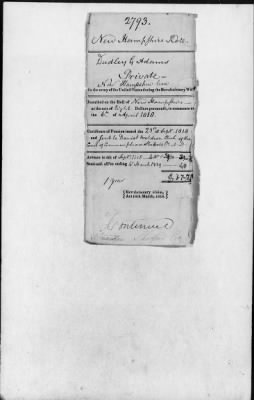 2793.
New Hampshire Roll.
Dudley G Adams
Private
New Hampshire line
In the army of the United States during the Revolutionary War
Inscribed on the Roll of New Hampshire
at the rate of Eight Dollars per month, to commence on
the 6th of April 1818
Certificate of Pension issued the 23d of Sept 1818
and sent to Daniel
Arrears to 4th of Sept 1818
Semi-anl. all'ce ending 4 March 1819
Revolutionary claim,
Act 18th March, 1818.
Continued